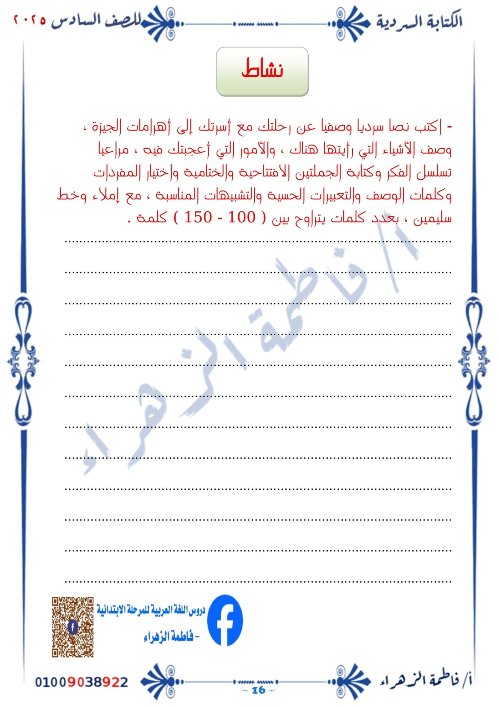 الكتابة السردية
للصف السادس ٢٠٢٥
نشاط
- اكتب نصا سرديا وصفيا عن رحلتك مع أسرتك إلى أهرامات الجيزة ،
وصف الأشياء التي رأيتها هناك ، والأمور التي أعجبتك فيه ، مراعيا
تسلسل الفكر وكتابة الجملتين الافتتاحية والختامية واختيار المفردات
وكلمات الوصف والتعبيرات الحسية والتشبيهات المناسبة ، مع إملاء وخط
سليمين ، بعدد كلمات يتراوح بين ( 100 - 150 ) كلمة .
أ/ فاطمة الزهراء
دروس اللغة العربية للمرحلة الابتدائية
- فاطمة الزهراء
أ/ فاطمة الزهراء
~ 16 ~
01009038922